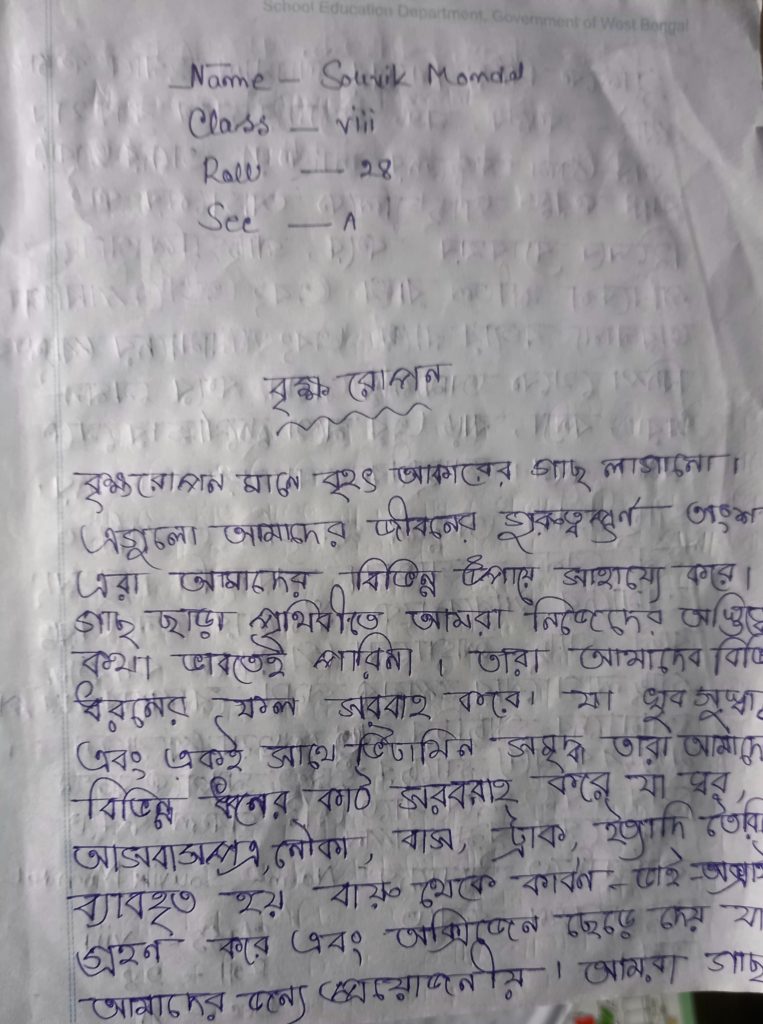 School Education Department, Government of West Bengal
Name - Souvik Mondal
Class - viii
Roll - 28
Sec - A
বৃক্ষ রোপন
বৃক্ষরোপন মানে বৃহৎ আকারের গাছ লাগানো।
এগুলো আমাদের জীবনের গুরুত্বপূর্ণ অংশ
এরা আমাদের বিভিন্ন উপায়ে সাহায্যে করে।
গাছ ছাড়া পৃথিবীতে আমরা নিজেদের
কথা ভাবতেই পারিনা। তারা আমাদের
ধরনের ফল সরবাহ করে। যা খুব
এবং একই সাথে ভিটামিন সমৃদ্ধ তারা
বিভিন্ন ধনের কাঠ সরবরাহ করে যা ঘর,
আসবাসপত্র, নৌকা, বাস, ট্রাক, ইত্যাদি তৈরি
ব্যাবহৃত হয় বায়ু থেকে কার্বন-ডাই
গ্রহন করে এবং অক্সিজেন ছেড়ে দেয় যা
আমাদের জন্যে প্রয়োজনীয়। আমরা গাছ